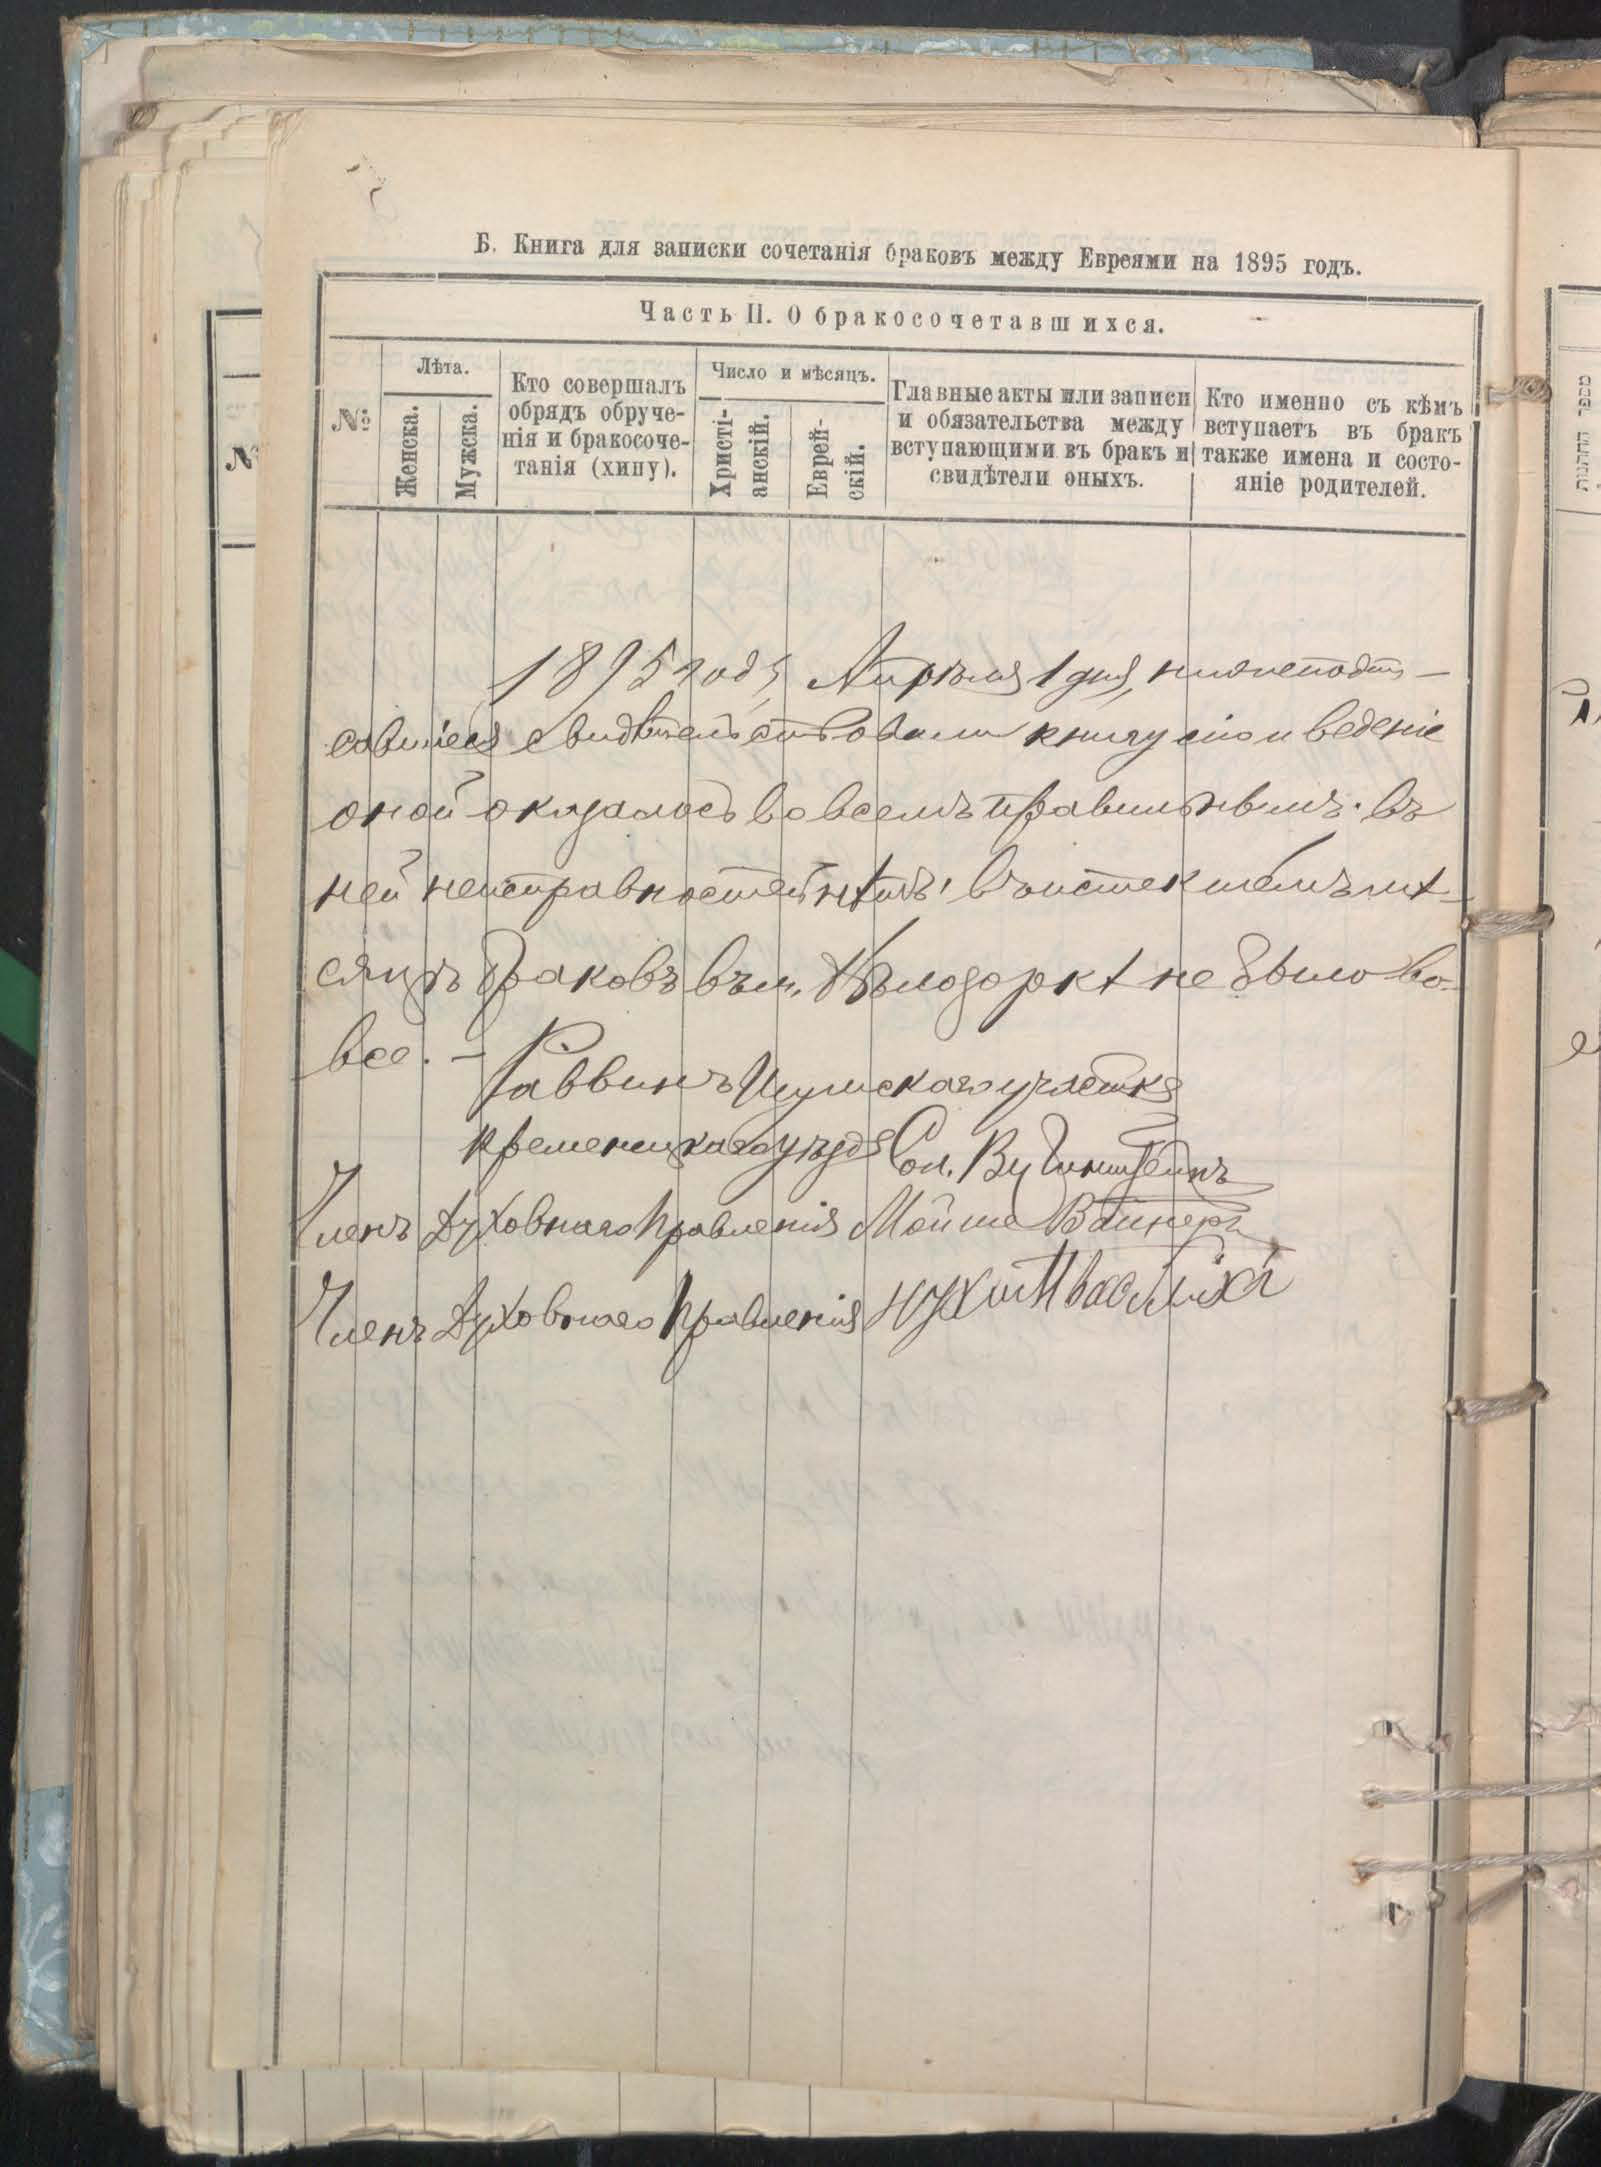 Б. Книга для записки сочетанія браковъ между Евреями на 1895 годъ.
Часть II. О бракосочетавшихся.
№
Лѣта.
Женска.
Мужска.
Кто совершалъ
обрядъ обруче-
нія и бракосоче-
танія (хипу).
Число и мѣсяцъ.
Христі-
анскій.
Еврей-
скій.
Главные акты или записи
и обязательства между
вступающими въ бракъ и
свидѣтели оныхъ.
Кто именно съ кѣмъ
вступаетъ въ бракъ
также имена и состо-
яніе родителей.
1895 года, Апрѣля 1 дня, нижеподпи-
савшіеся свидѣтельствовали книгу сію и веденіе
оной оказалось во всемъ правильнымъ. въ
ней неисправностей нѣтъ; въ истекшемъ мѣ-
сяцѣ браковъ въ м. Бѣлозоркѣ не было во-
все. —
Раввинъ Шумскаго участка
Кременецкаго уѣзда Сол.
Членъ Духовнаго Правленія Мойше Вайнеръ
Членъ Духовнаго Правленія Нухим
№
מספר החתונות